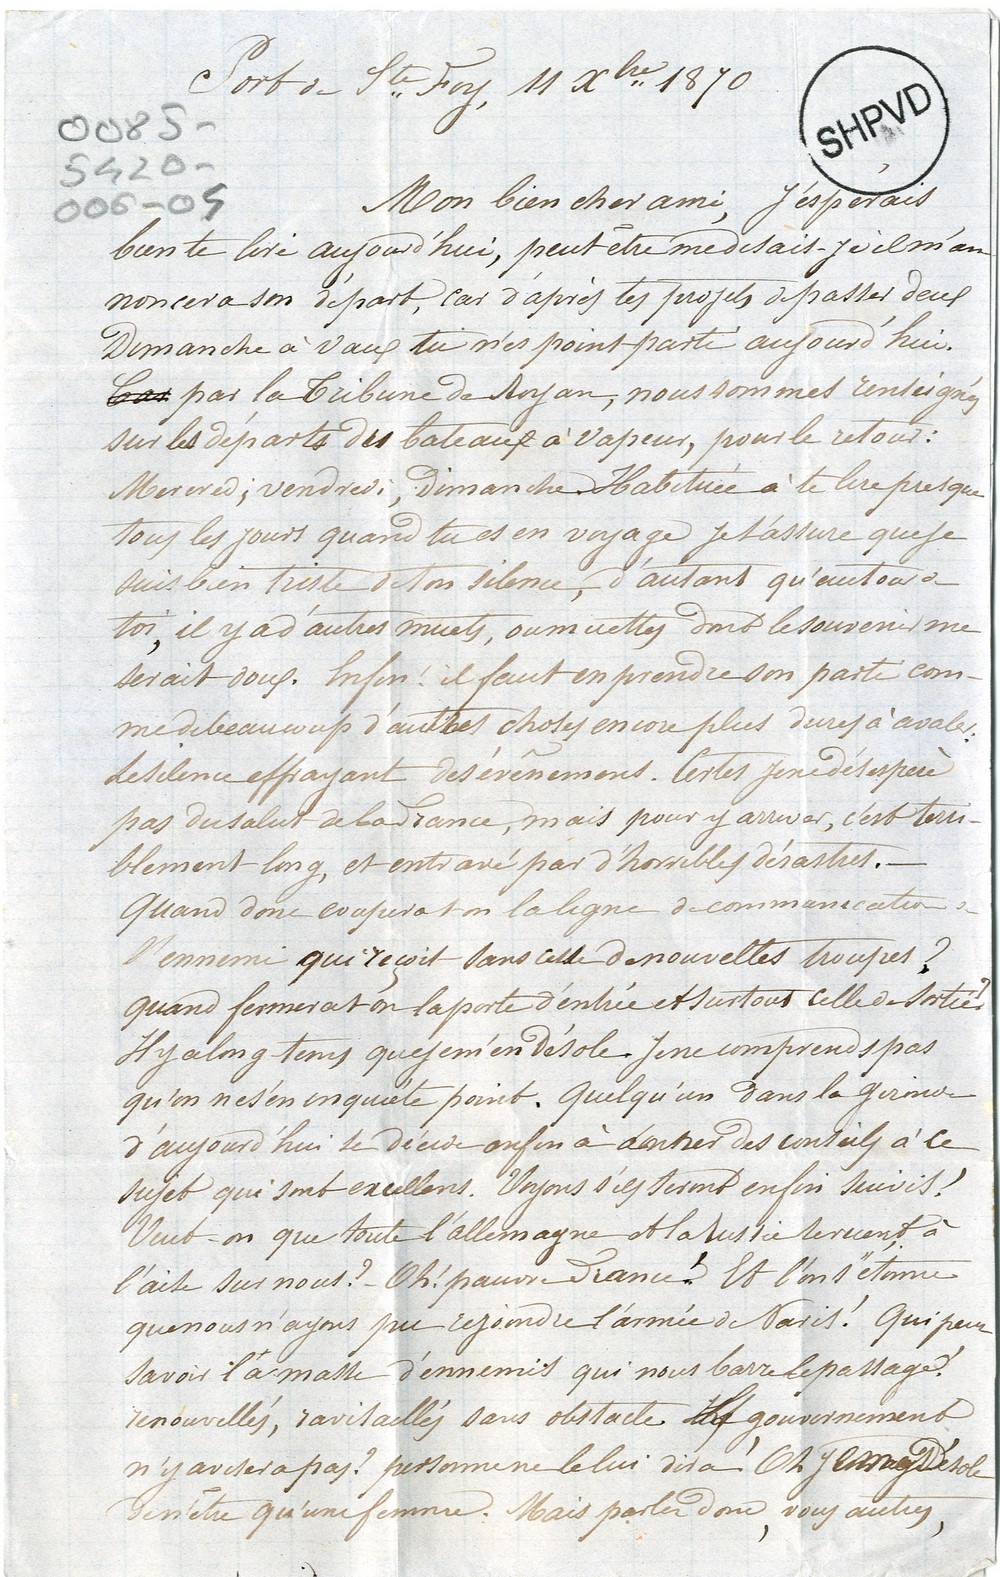 Port de Ste Foy, 11 Xbre 1870
SHPVD
0085-
5420-
006-05
Mon bien cher ami, J'espérais
bien te lire aujourd'hui, peut être me disais-je il m'an
noncera son départ, car d'après tes projets de passer deux
Dimanche à Vaux tu n'es point parti aujourd'hui.
Car par la Tribune de Royan, nous sommes renseignés
sur les départs des bateaux à vapeur, pour le retour:
Mercredi, vendredi, Dimanche. Habituée à te lire presque
tous les jours quand tu es en voyage je t'assure que je
suis bien triste de ton silence, d'autant qu'autour de
toi, il y a d'autres muets, ou muettes dont le souvenir me
serait doux. Enfin! il faut en prendre son parti com-
me de beaucoup d'autres choses encore plus dures à avaler:
le silence effrayant des évênemens. Certes je ne désespère
pas du salut de la France, mais pour y arriver, c'est terri-
blement long, et entravé par d'horribles désastres. —
Quand donc coupera t on la ligne de communication de
l'ennemi qui reçoit sans cesse de nouvelles troupes?
quand fermera t on la porte d'entrée et surtout celle de sortie?
Il y a long-tems que je m'en désole. Je ne comprends pas
qu'on ne s'en inquiète point. Quelqu'un dans la Gironde
d'aujourd'hui se décide enfin à donner des conseils à ce
sujet qui sont excellens. Voyons s'ils seront enfin suivis!
Veut-on que toute l'allemagne et la Russie servent à
l'aise sur nous? - Oh! pauvre France! Et l'on s'étonne
que nous n'ayons pu rejoindre l'armée de Paris! Qui peut
savoir la masse d'ennemis qui nous barre le passage!
renouvellés, ravitaillés sans obstacle. Le gouvernement
n'y avisera pas? personne ne le lui dira! Oh je me désole
de n'être qu'une femme. Mais parlez donc, vous autres,